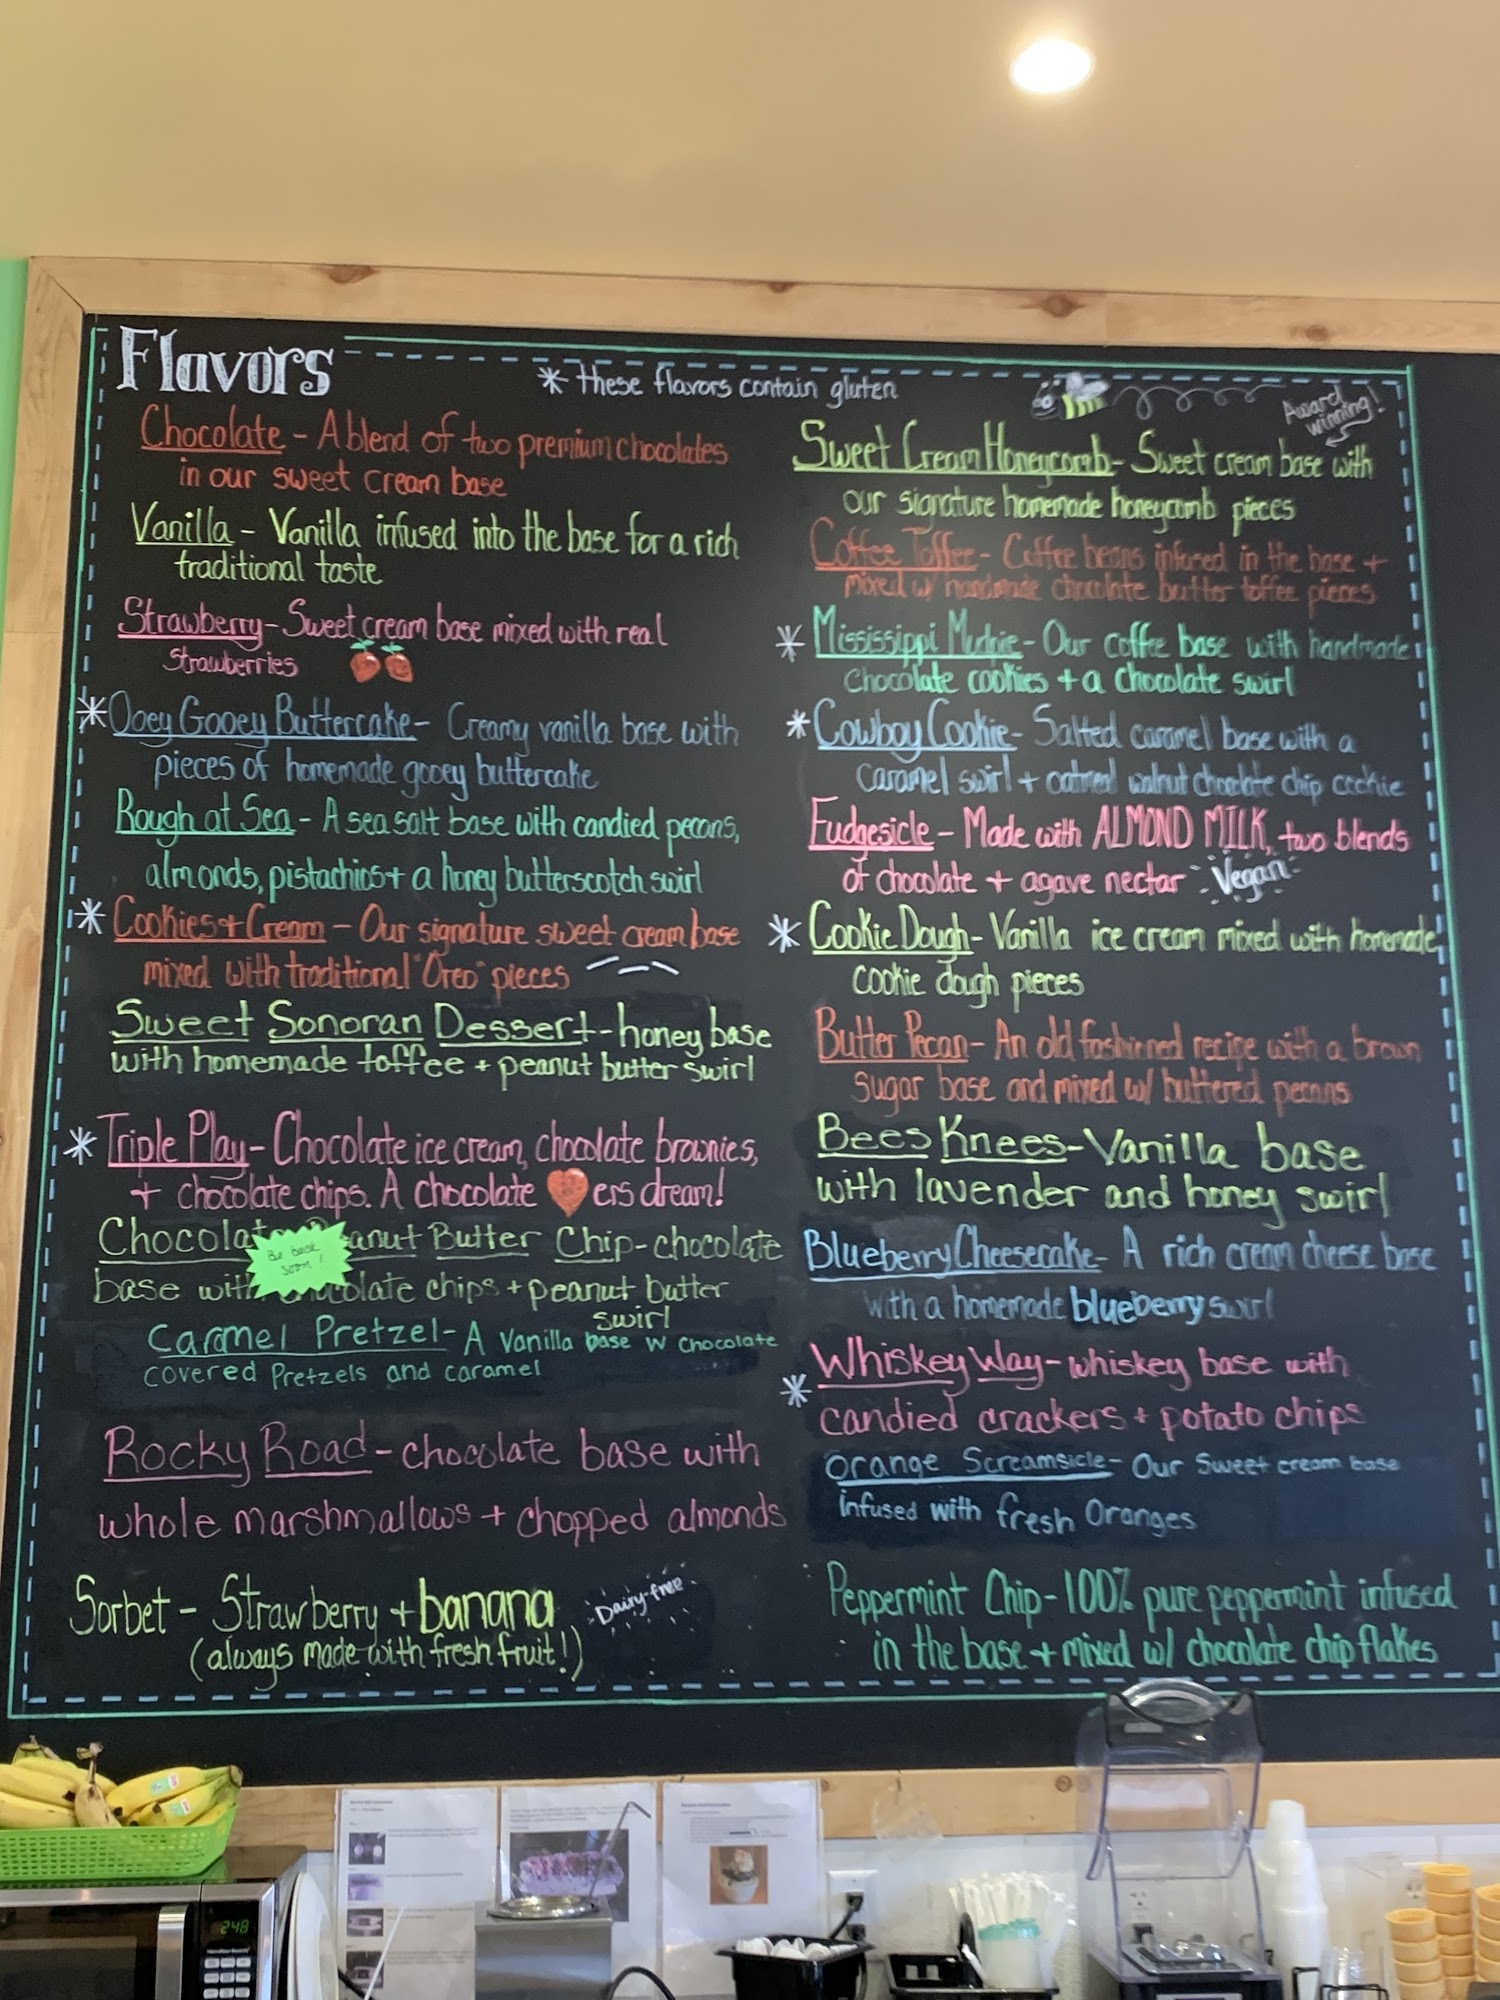 Flavors
* these flavors contain gluten
Chocolate - A blend of two premium chocolates
in our sweet cream base
Vanilla - Vanilla infused into the base for a rich
traditional taste
Strawberry - Sweet cream base mixed with real
strawberries
* Ooey Gooey Buttercake - Creamy vanilla base with
pieces of homemade gooey buttercake
Rough at Sea - A sea salt base with candied pecans,
almonds, pistachios + a honey butterscotch swirl
* Cookies + Cream - Our signature sweet cream base
mixed with traditional "Oreo" pieces
Sweet Sonoran Dessert - honey base
with homemade toffee + peanut butter swirl
* Triple Play - Chocolate ice cream, chocolate brownies,
+ chocolate chips. A chocolate ers dream!
Chocolate Peanut Butter Chip - chocolate
Be back
soon!
base with chocolate chips + peanut butter
swirl
Caramel Pretzel - A Vanilla base W Chocolate
covered Pretzels and caramel
Rocky Road - chocolate base with
whole marshmallows + chopped almonds
Sorbet - Strawberry + banana
Dairy-free
(always made with fresh fruit!)
Award
winning!
Sweet Cream Honeycomb - Sweet cream base with
our signature homemade honeycomb pieces
Coffee Toffee - Coffee beans infused in the base +
mixed w/ handmade chocolate butter toffee pieces
* Mississippi Mudpie - Our coffee base with handmade
chocolate cookies + a chocolate swirl
* Cowboy Cookie - Salted caramel base with a
caramel swirl + oatmeal walnut chocolate chip cookie
Fudgesicle - Made with ALMOND MILK, two blends
of chocolate + agave nectar Vegan
* Cookie Dough - Vanilla ice cream mixed with homemade
cookie dough pieces
Butter Pecan - An old fashioned recipe with a brown
sugar base and mixed w/ buttered pecans
Bees Knees - Vanilla base
with lavender and honey swirl
Blueberry Cheesecake - A rich cream cheese base
with a homemade blueberry swirl
* Whiskey Way - whiskey base with
candied crackers + potato chips
Orange Screamsicle - Our Sweet cream base
infused with fresh Oranges
Peppermint Chip - 100% pure peppermint infused
in the base + mixed w/ chocolate chip flakes
248